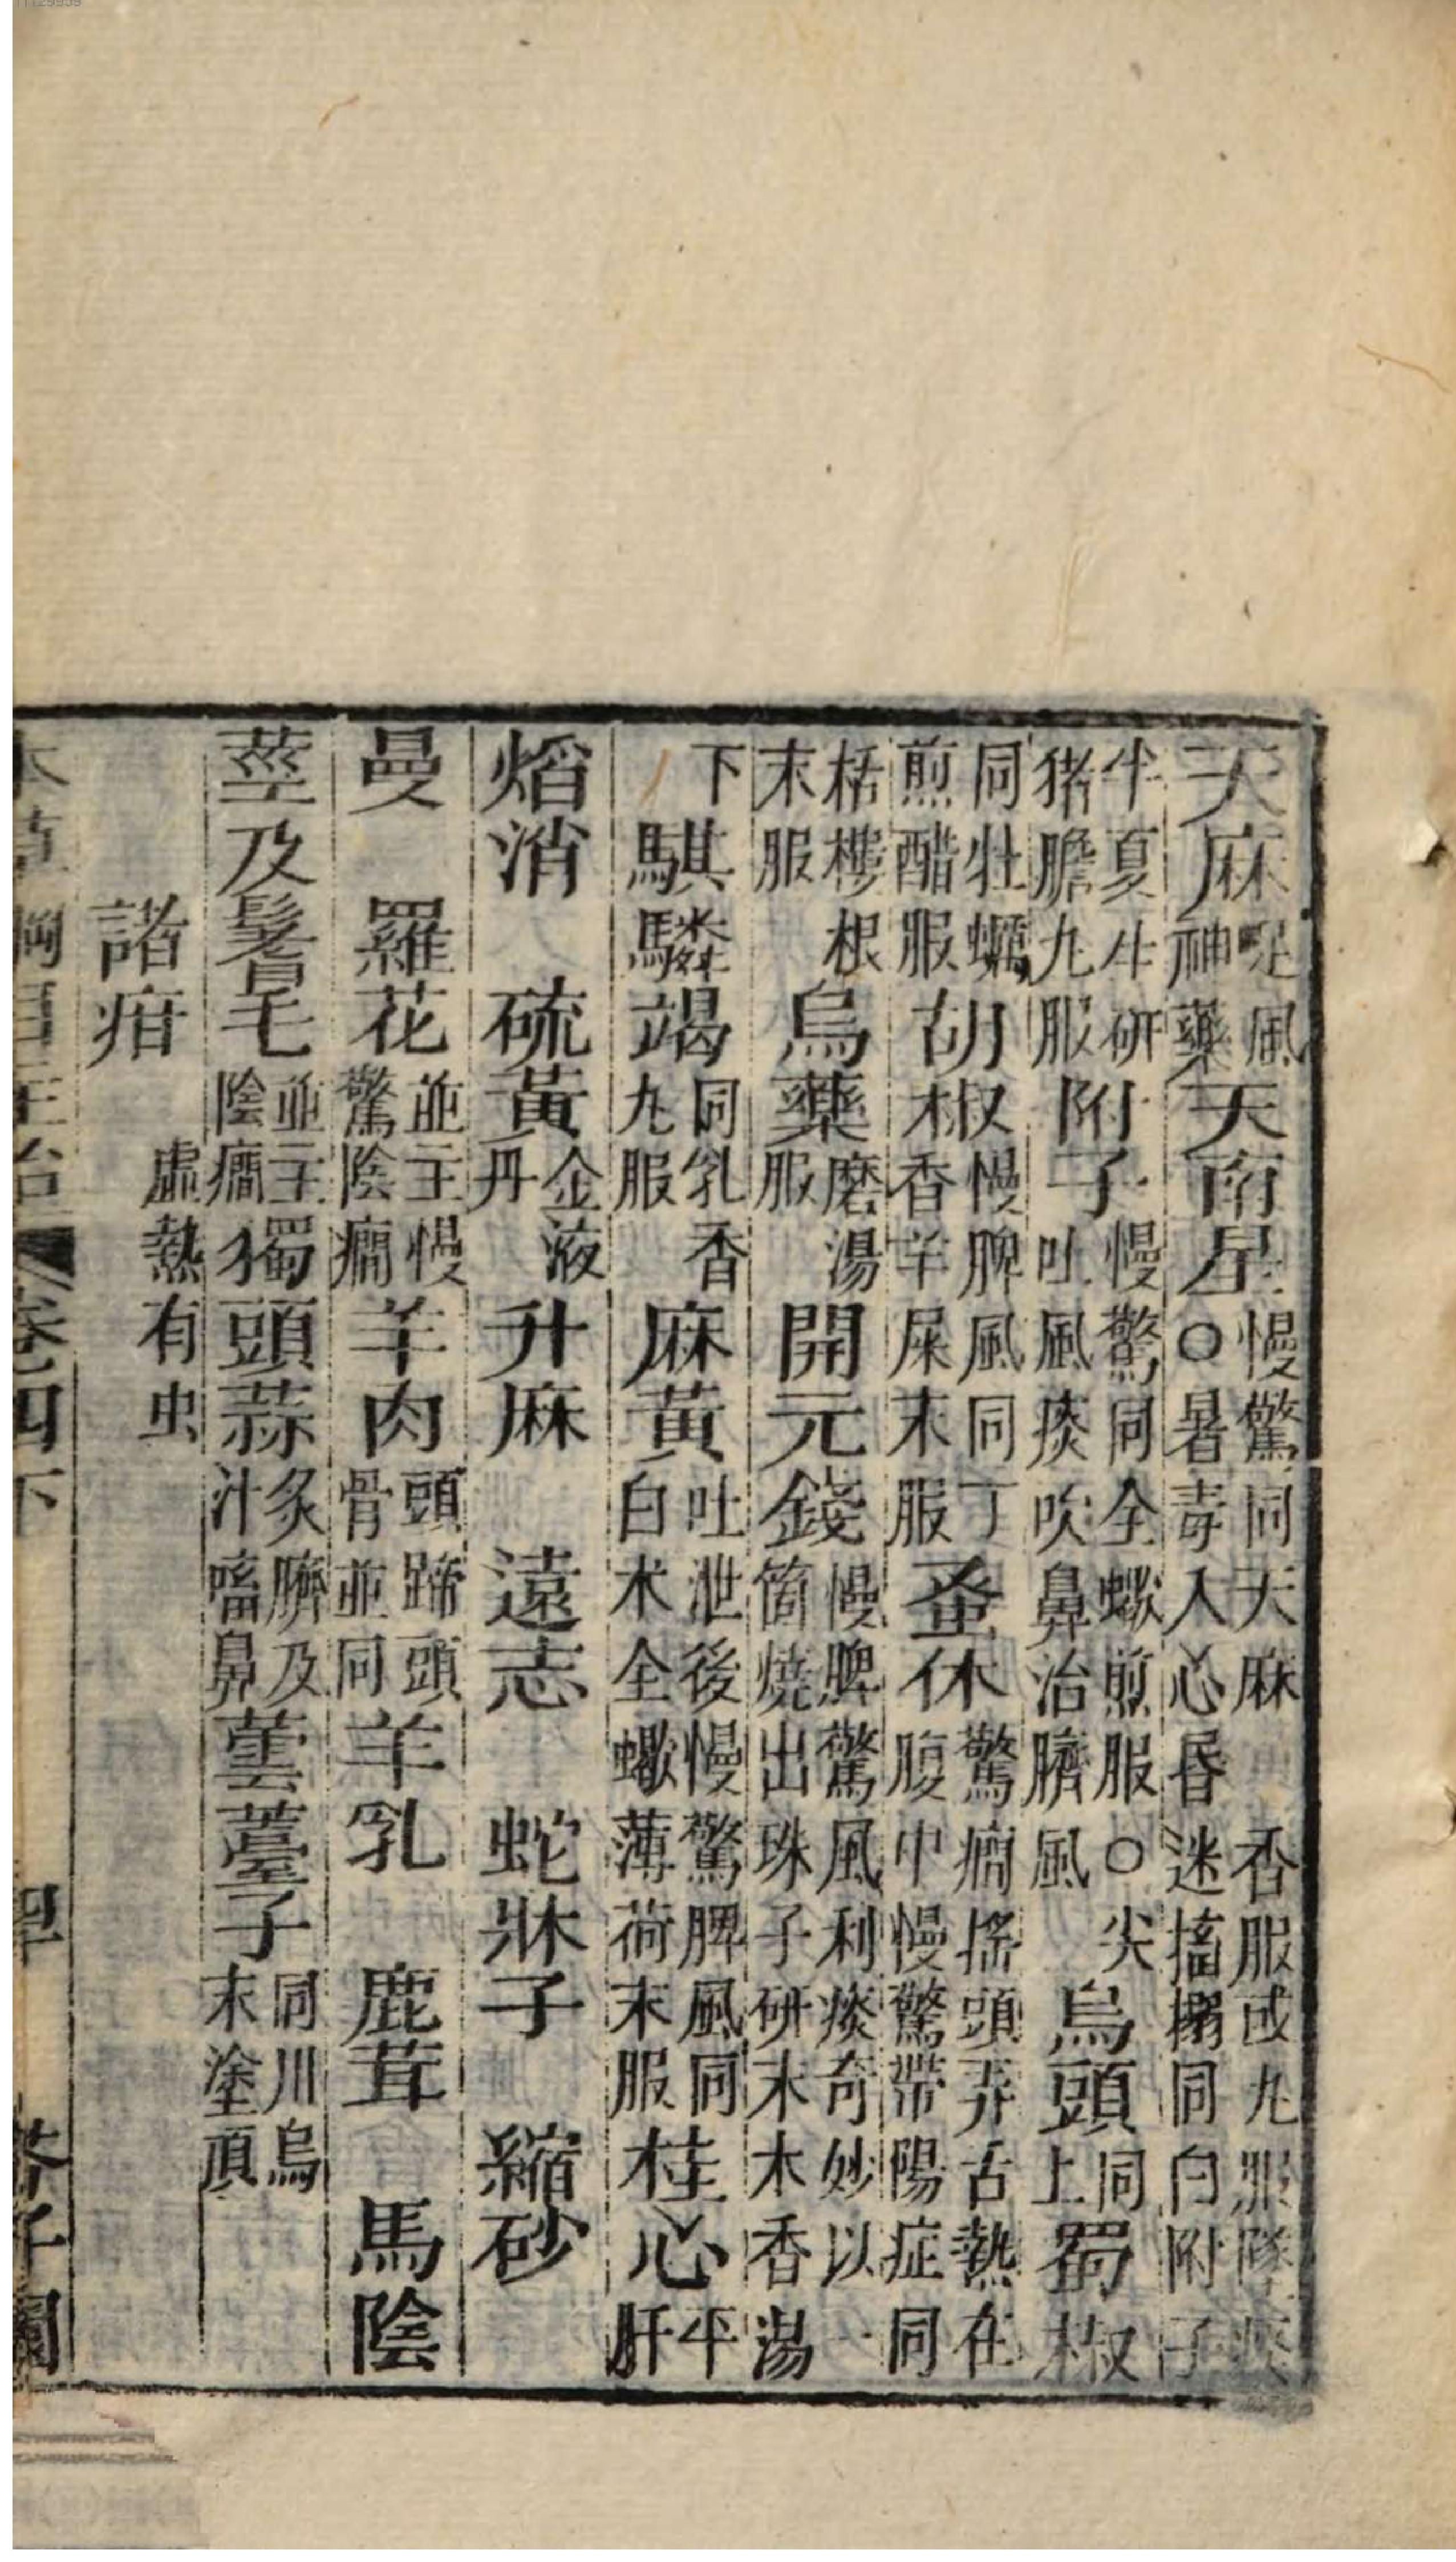 天麻 定風神藥 天南星 慢驚同天麻香服或丸服墜痰○暑毒入心昏迷搐搦同白附子
半夏生研猪膽丸服 附子 慢驚同全蠍煎服○尖吐風痰吹鼻治臍風 烏頭 同上 蜀椒
同牡蠣煎醋服 胡椒 慢脾風同丁香羊屎末服 蚤休 驚癇搖頭弄舌熱在腹中慢驚帶陽症同
栝樓根末服 烏藥 磨湯服 開元錢 慢脾驚風利痰奇妙以一箇燒出珠子研末木香湯
下 騏驎竭 同乳香丸服 麻黃 吐泄後慢驚脾風同白术全蠍薄荷末服 桂心 平肝
焰消 硫黃 金液丹 升麻 遠志 蛇牀子 縮砂
曼羅花 並主慢驚陰癇 羊肉 頭蹄頭骨並同 羊乳 鹿茸 馬陰
莖及鬐毛 並主陰癇 獨頭蒜 炙臍及汁嗜鼻 蕓薹子 同川烏末塗頂
諸疳 虛熱有虫
本草綱目主治 卷四下 芥子園